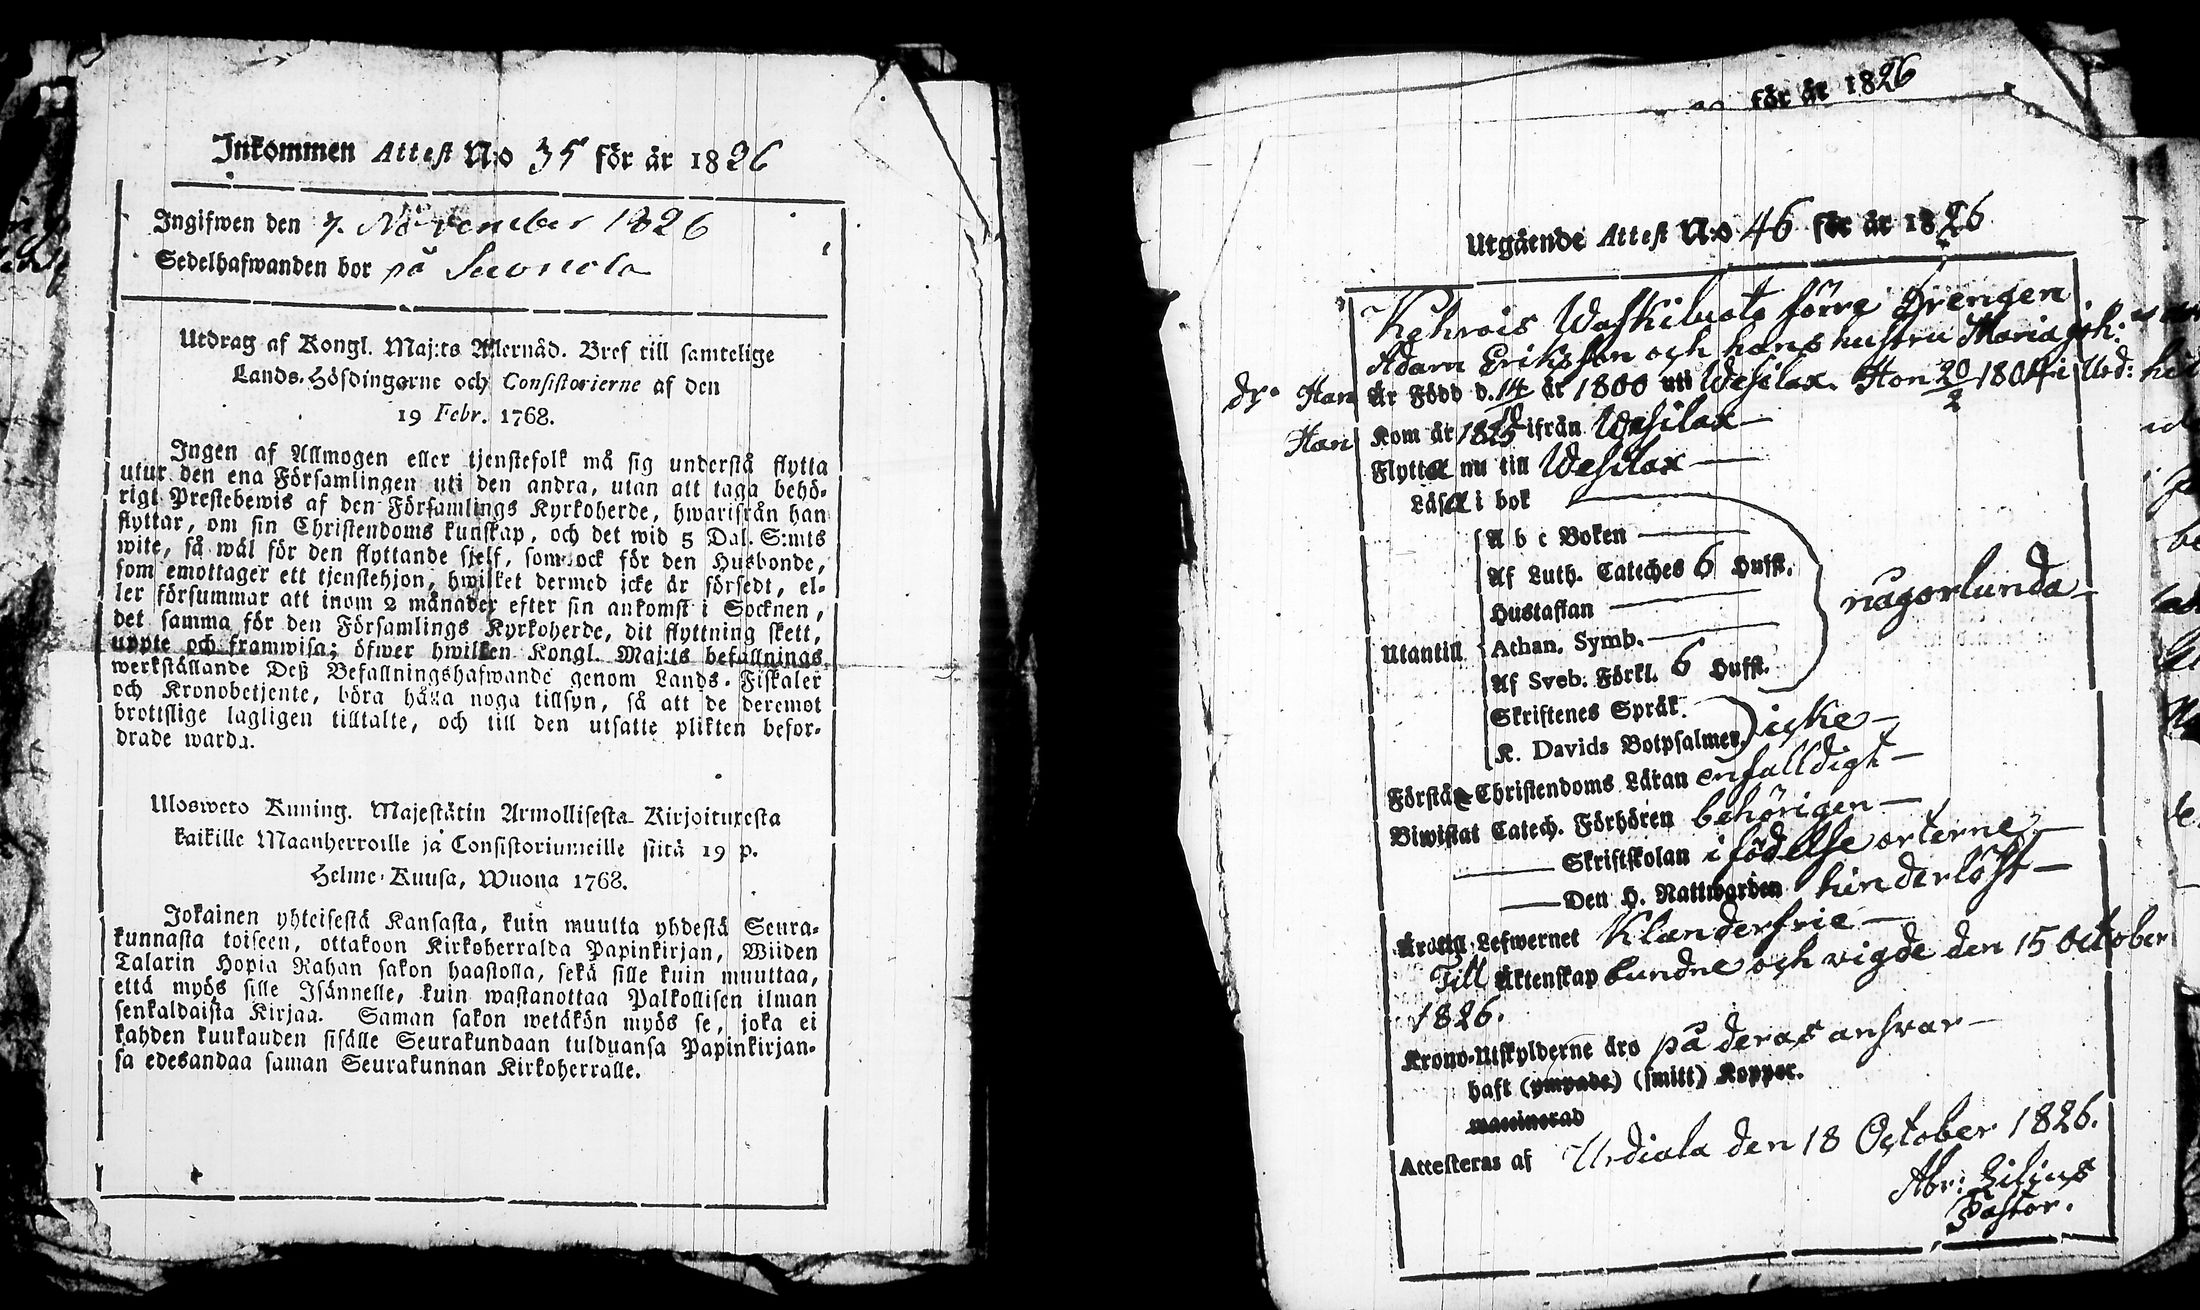 Inkommen Attest N:o 35 för år 1826
Ingifwen den 7. November 1826
Sedelhafwanden bor på Suonola
Utdrag af Kongl. Maj:ts Allernåd. Bref till samtelige
Lands-Höfdingarne och Consistorierne af den
19 Febr. 1768.
Ingen af Allmogen eller tjenstefolk må sig understå flytta
utur den ena Församlingen uti den andra, utan att taga behö-
rigt Prestebewis af den Församlings Kyrkoherde, hwarifrån han
flyttar, om sin Christendoms kunskap, och det wid 5 Dal. S:mts
wite, så wäl för den flyttande sjelf, som ock för den Husbonde,
som emottager ett tjenstehjon, hwilket dermed icke är försedt, el-
ler försummar att inom 2 månader efter sin ankomst i Socknen,
det samma för den Församlings Kyrkoherde, dit flyttning skett,
uppte och framwisa; öfwer hwilken Kongl. Maj:ts befallnings
werkställande Deß Befallningshafwande genom Lands-Fiskaler
och Kronobetjente, böra hålla noga tillsyn, så att de deremot
brottslige lagligen tilltalte, och till den utsatte plikten befor-
drade warda.
Ulosweto Kuning. Majestätin Armollisesta Kirjoituxesta
kaikille Maanherroille ja Consistoriumeille siitä 19 p.
Helme-Kuusa, Wuona 1768.
Jokainen yhteisestä Kansasta, kuin muutta yhdestä Seura-
kunnasta toiseen, ottakoon Kirkoherralda Papinkirjan, Wiiden
Talarin Hopia Rahan sakon haastolla, sekä sille kuin muuttaa,
että myös sille Isännelle, kuin wastanottaa Palkollisen ilman
senkaldaista Kirjaa. Saman sakon wetäkön myös se, joka ei
kahden kuukauden sisälle Seurakundaan tulduansa Papinkirjan-
sa edesandaa saman Seurakunnan Kirkoherralle.
för år 1826
Utgående Attest N:o 46 för år 1826
Kehrois Waskibuots förre Drengen
Adam Eriksson och hans hustru Maria Joh:
dr. Han Är Född d. 14/10 år 1800 uti Wesilax. Hon 20/2 1804 i Urd:
Han Kom år 1825 ifrån Wesilax
Flytta nu till Wesilax
Läsa i bok
A b c Boken
Af Luth. Cateches 6 Hufst.
Hustaflan
någorlunda
Utantill
Athan. Symb.
Af Sveb. Förkl. 6 Hufst.
Skriftenes Språk
K. Davids Botpsalmer. icke
Förstå Christendoms Läran enfalldigt
Biwistat Catech. Förhören behörigen
Skriftskolan i födelse orterne
Den H. Nattwarden hinderlöst
Ärelig Lefwernet Klanderfrie
Till Äktenskap bundne och vigde den 15 October
1826.
Krono-Utskylderne äro på deras answar
haft (ympade) (smitt) Koppor.
waccinerad
Attesteras af Urdiala den 18 October 1826.
Abr: Zilius
Pastor.